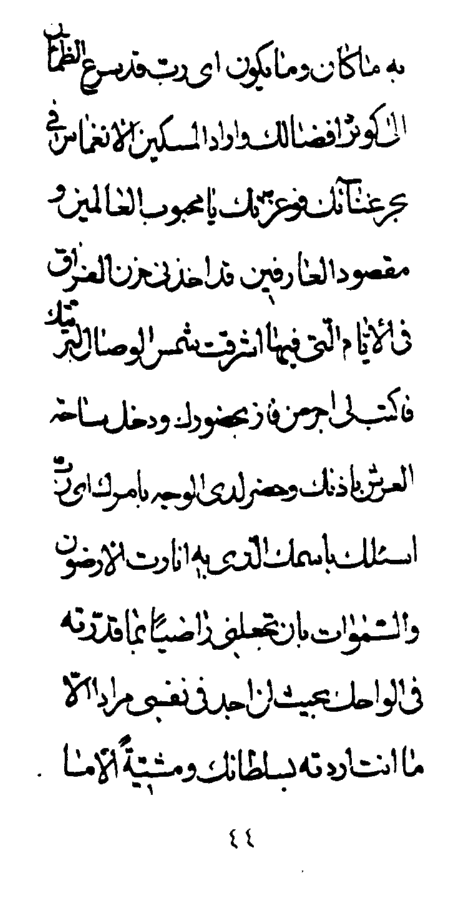 به ما كان وما يكون اى ربّ قد سرع الظمآن
الى كوثر افضالك واراد المسكين الانغماس فى
بحر غنآئك فوعزّتك يا محبوب العالمين و
مقصود العارفين قد اخذنى حزن الفراق
فى الايّام الّتى فيها اشرقت شمس الوصال لبريّتك
فاكتب لى اجر من فاز بحضورك ودخل ساحة
العرش باذنك وحضر لدى الوجه بامرك اى ربّ
اسئلك باسمك الّذى به انارت الارضون
والسّموات بان تجعلنى راضيًا بما قدّرته
فى الواحك بحيث لن اجد فى نفسى مرادا الّا
ما انت اردته بسلطانك ومشيّةً الّا ما
٤٤